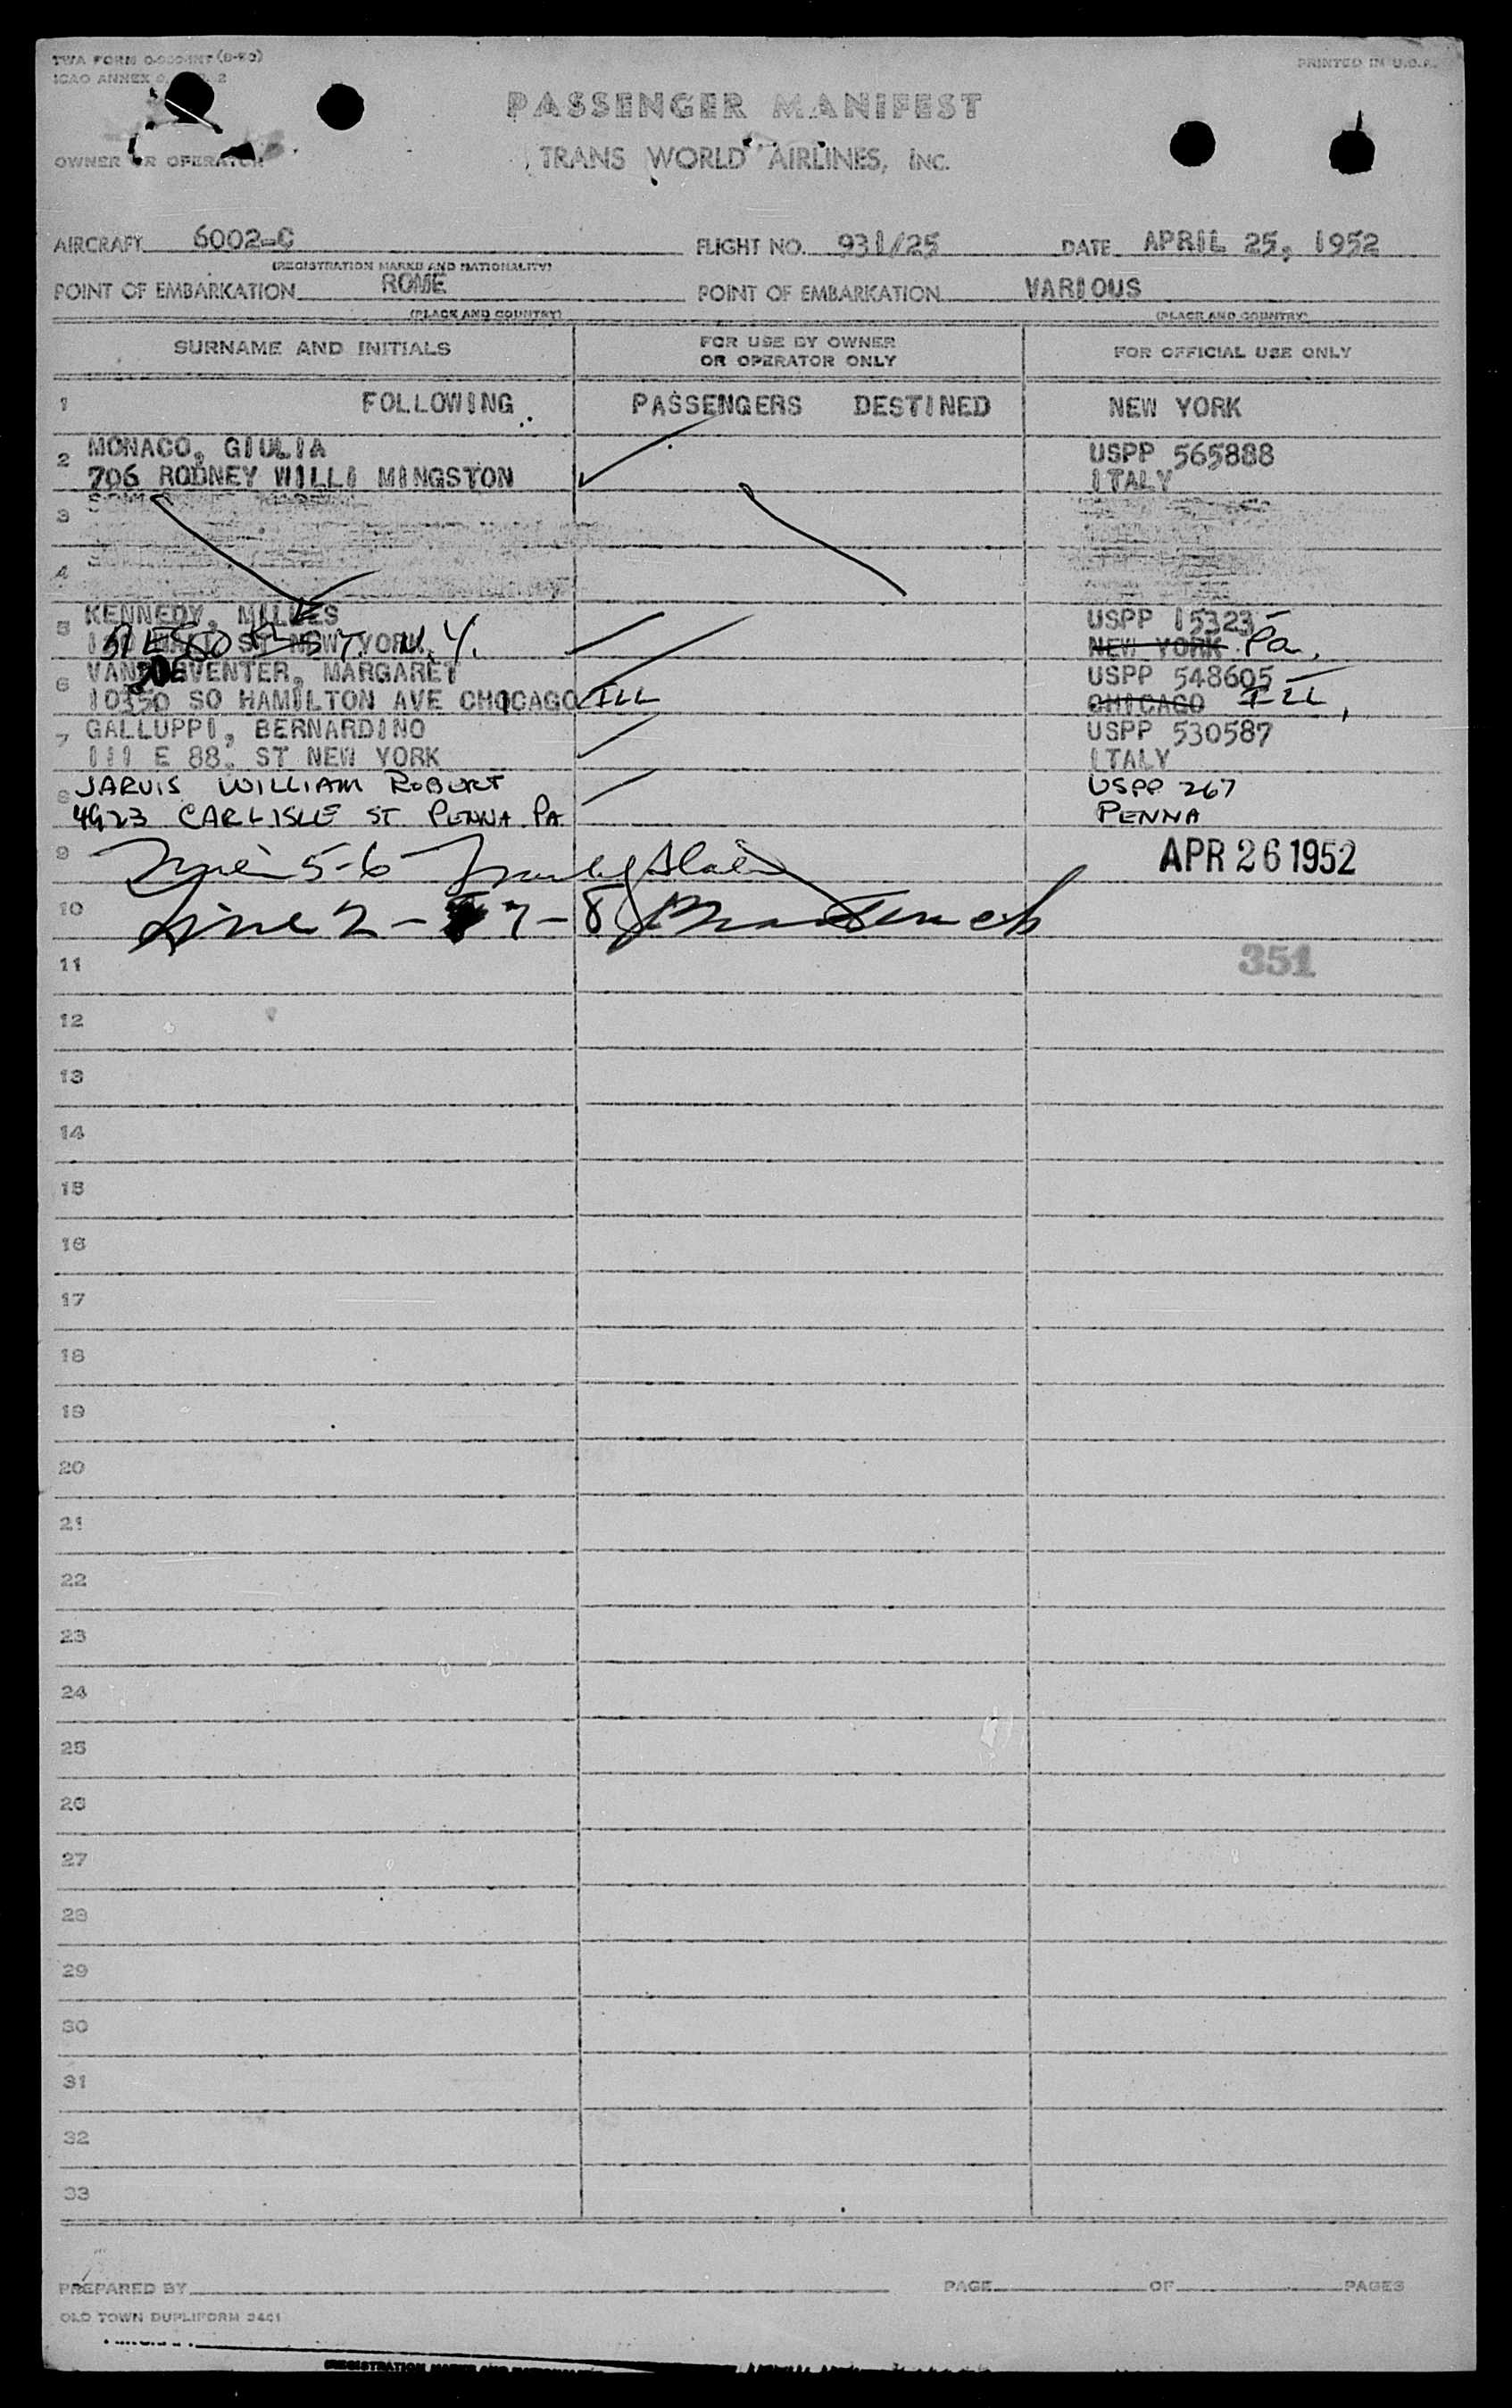 TWA FORM
ICAO ANNEX
PRINTED IN U.S.A.
PASSENGER MANIFEST
OWNER OR OPERATOR
TRANS WORLD AIRLINES, INC.
AIRCRAFT 6002-C FLIGHT NO. 931/25 DATE APRIL 25, 1952
(REGISTRATION MARKS AND NATIONALITY)
POINT OF EMBARKATION ROME POINT OF EMBARKATION VARIOUS
(PLACE AND COUNTRY) (PLACE AND COUNTRY)
SURNAME AND INITIALS FOR USE BY OWNER OR OPERATOR ONLY FOR OFFICIAL USE ONLY
1 FOLLOWING PASSENGERS DESTINED NEW YORK
2 MONACO, GIULIA USPP 565888
706 RODNEY WILLI MINGSTON ITALY
3
4
5 KENNEDY, USPP 15323
ST NEW YORK N.Y. NEW YORK Pa.
6 VANDEVENTER, MARGARET USPP 548605
10350 SO HAMILTON AVE CHOCAGO ILL CHICAGO ILL
7 GALLUPPI, BERNARDINO USPP 530587
111 E 88, ST NEW YORK ITALY
8 JARVIS WILLIAM ROBERT USPP 267
4923 CARLISLE ST PENNA PA PENNA
9 5-6 APR 26 1952
10 Line 2 - 7-8
11 351
12
13
14
15
16
17
18
19
20
21
22
23
24
25
26
27
28
29
30
31
32
33
PREPARED BY PAGE OF PAGES
OLD TOWN DUPLIFORM 2441